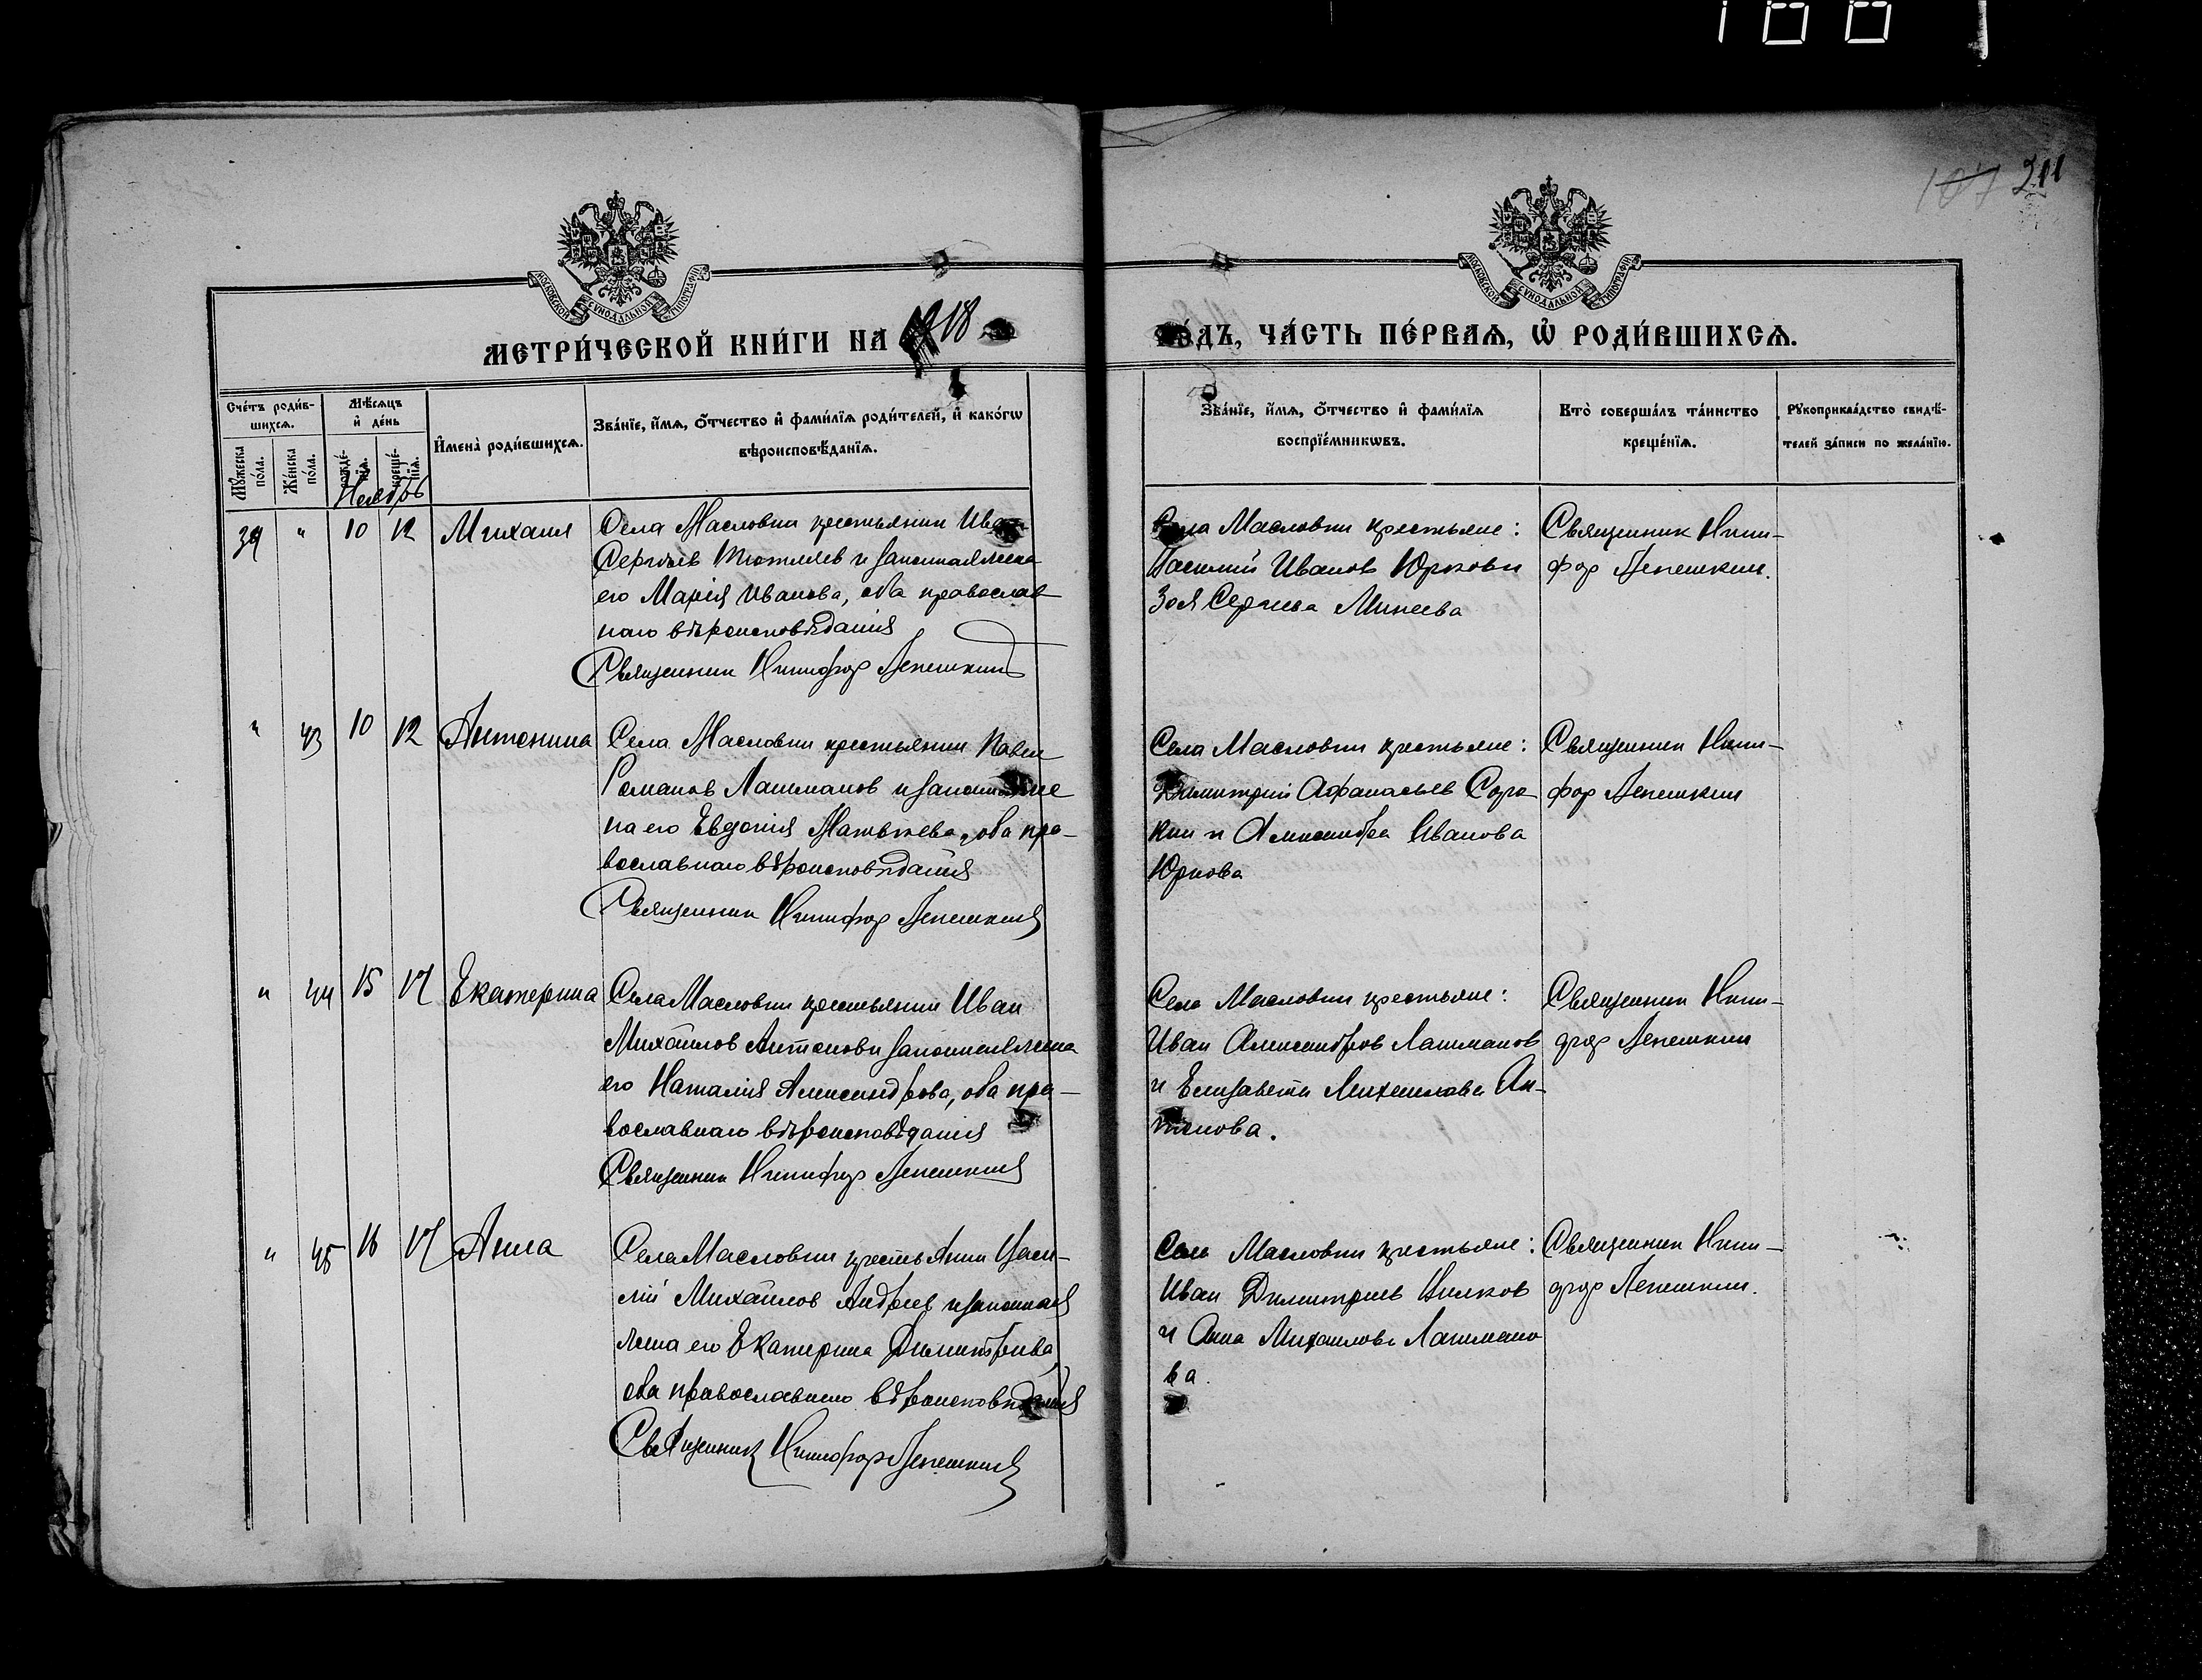 107 211
МОСКОВСКОЙ СѴНОДАЛЬНОЙ ТИПОГРАФІИ
МОСКОВСКОЙ СѴНОДАЛЬНОЙ ТИПОГРАФІИ
МЕТРИ́ЧЕСКОЙ КНИ́ГИ НА 1918
ГО́ДЪ, ЧА́СТЬ ПЕ́РВАѦ, Ѡ҆ РОДИ́ВШИХСѦ.
Сче́тъ роди́в-
шихсѧ.
Мꙋ́жеска по́ла.
Же́нска по́ла.
Мѣ́сѧцъ
и҆ де́нь
рожде́-нїѧ.
креще́-нїѧ.
И҆мена̀ роди́вшихсѧ.
Зва́нїе, и҆́мѧ, ѻ҆́тчество и҆ фами́лїѧ роди́телей, и҆ како́гѡ
вѣроисповѣ́данїѧ.
Зва́нїе, и҆́мѧ, ѻ҆́тчество и҆ фами́лїѧ
воспрїе́мникѡвъ.
Кто̀ соверша́лъ та́инство
креще́нїѧ.
Рꙋкоприкла́дство свидѣ́-
телей за́писи по жела́нїю.
Ноябрь
39 " 10 12 Михаил
Села Масловки крестьянин Иван
Сергѣев и законная жена
его Марія Иванова, оба православ
наго вѣроисповѣданія
Священник Никифор Лепешкин
Села Масловки крестьяне:
Василий Иванов Юрков и
Зоя Сергиева Минеева
Священник Ники-
фор Лепешкин.
" 43 10 12 Антонина
Села Масловки крестьянин Павел
Романов Лашманов и законная же
на его Евдокия Матвѣева, оба пра-
вославнаго вѣроисповѣдания
Священник Никифор Лепешкин
Села Масловки крестьяне:
Димитрий Афанасьев Соро
кин и Александра Иванова
Юркова
Священник Ники-
фор Лепешкин
" 44 15 17 Екатерина
Села Масловки крестьянин Иван
Михайлов Антонов и законная жена
его Наталия Александрова, оба пра-
вославнаго вѣроисповѣдания
Священник Никифор Лепешкин
Села Масловки крестьяне:
Иван Александров Лашманов
и Елизавета Михаилова Ан-
тонова.
Священник Ники-
фор Лепешкин
" 45 16 17 Анна
Села Масловки крестьянин Васи-
лий Михайлов Андреев и законная
жена его Екатерина Димитриева,
оба православнаго вѣроисповѣдания
Священник Никифор Лепешкин
Села Масловки крестьяне:
Иван Димитриев
и Анна Михаилова Лашмано
ва.
Священник Ники-
фор Лепешкин.